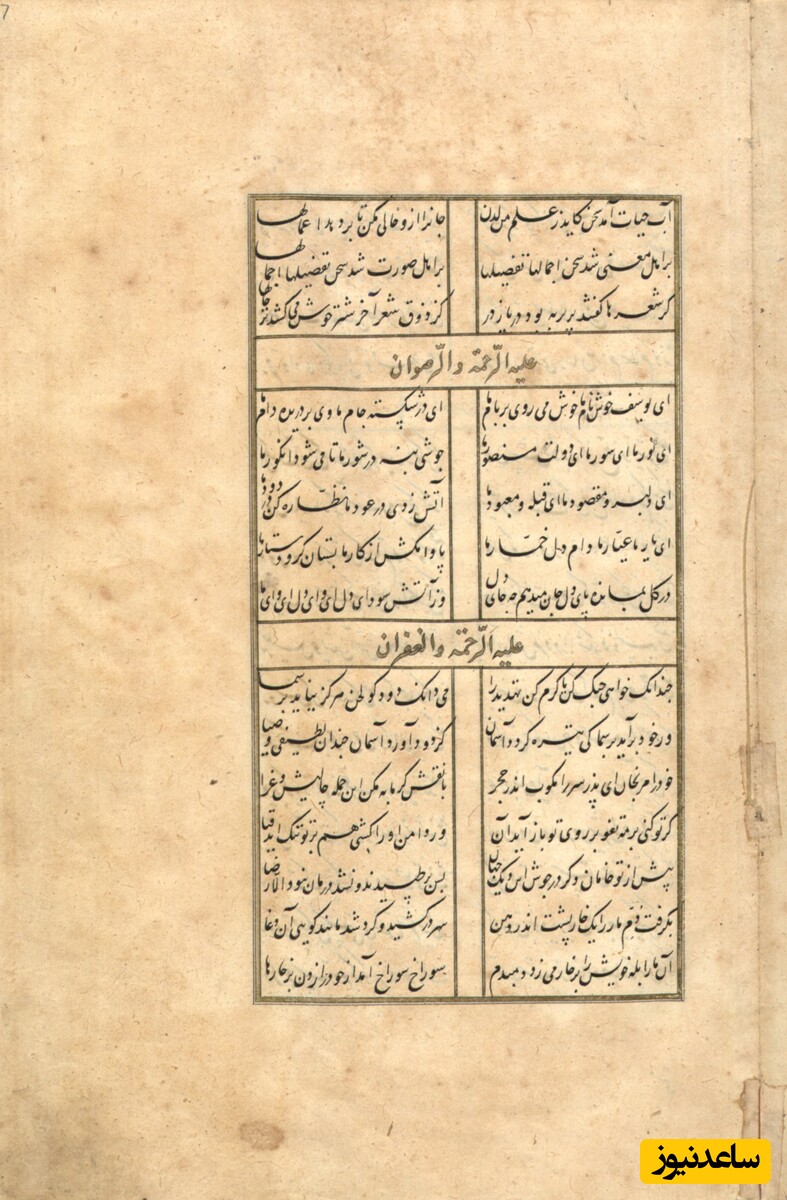 آب حیات آمد سخن کاید ز علم من لدن جانرا ازو خالی مکن تا بر دهد اعمالها
بر اهل معنی شد سخن اجمالها تفصیلها بر اهل صورت شد سخن تفصیلها اجمالها
گر شعرها گفتند پر پر به بود دریا ز در کز ذوق شعر آخر شتر خوش می کشد ترحالها
علیه الرحمة والرضوان
ای یوسف خوش نام ما خوش می روی بر بام ما ای در شکسته جام ما وی بر دریده دام ما
ای نور ما ای سور ما ای دولت منصور ما جوشی بنه در شور ما تا می شود انگور ما
ای دلبر و مقصود ما ای قبله و معبود ما آتش زدی در عود ما نظاره کن در دود ما
ای یار ما عیار ما دام دل خمار ما پا وامکش از کار ما بستان گرو دستار ما
در گل بمانده پای دل جان میدهم چه جای دل وز آتش سودای دل ای وای دل ای وای ما
علیه الرحمة والغفران
چندانک خواهی جنگ کن یا گرم کن تهدید را می دانک دود گولخن هرگز نیاید بر سما
ور خود برآید بر سما کی تیره گردد آسمان کز دود آورد آسمان چندان لطیفی و ضیا
خود را مرنجان ای پدر سر را مکوب اندر حجر با نقش گرمابه مکن این جمله چالیش و غزا
گر تو کنی بر مه تفو بر روی تو باز آید آن ور دامن او را کشی هم بر تو تنگ آید قبا
پیش از تو خامان دگر در جوش این دیک جهان بس برطپیدند و نشد درمان نبود الا رضا
بگرفت دم مار را یک خارپشت اندر دهن سر درکشید و گرد شد مانند گویی آن دغا
آن مار ابله خویش را بر خار می زد دمبدم سوراخ سوراخ آمد از خود در زدن بر خارها
ساعدنیوز
7